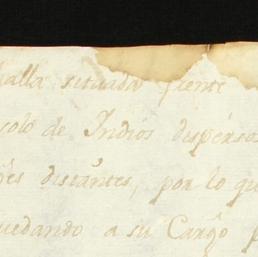 alla situada frente
solo de Indios dispersa
es distantes, por lo qu
uedando a su Cargo p